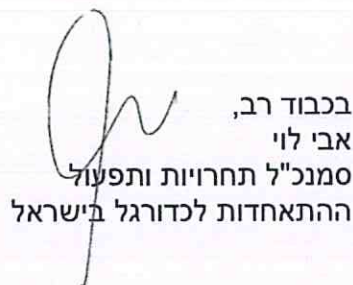 בכבוד רב,
אבי לוי
סמנכ"ל תחרויות ותפעול
ההתאחדות לכדורגל בישראל